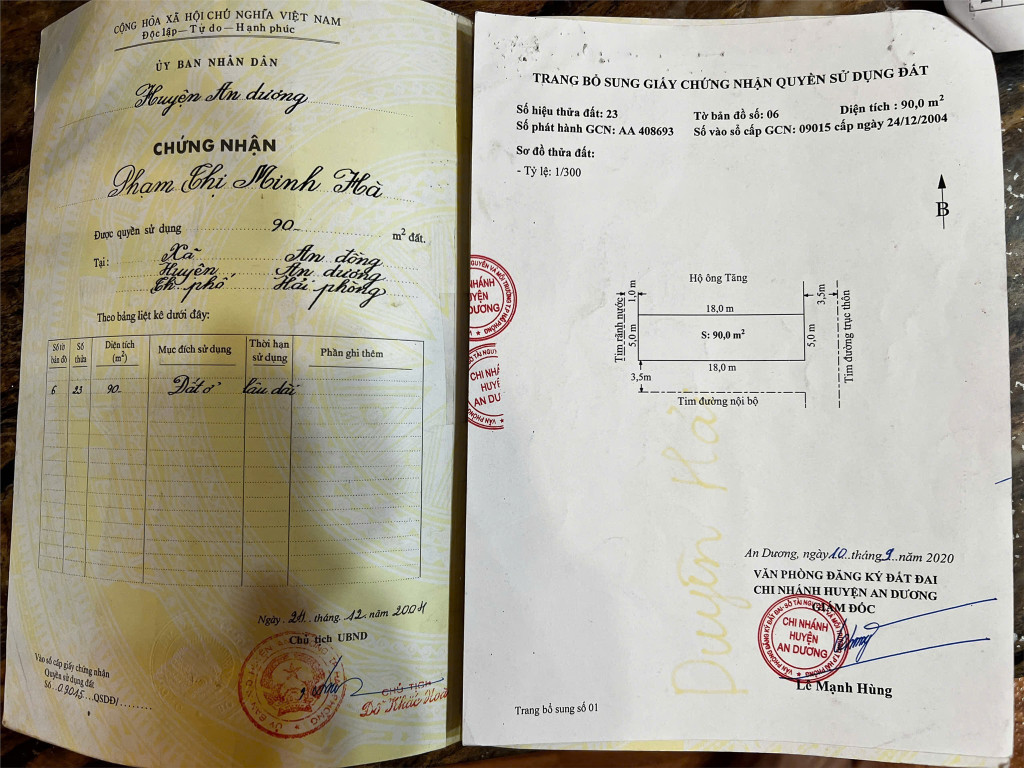 CỘNG HÒA XÃ HỘI CHỦ NGHĨA VIỆT NAM
Độc lập — Tự do — Hạnh phúc
ỦY BAN NHÂN DÂN
Huyện An dương
CHỨNG NHẬN
Phạm Thị Minh Hà
Được quyền sử dụng 90 m² đất.
Tại: Xã An đồng
Huyện An dương
Th. phố Hải phòng
Theo bảng liệt kê dưới đây:
Số tờ bản đồ Số thửa Diện tích (m²) Mục đích sử dụng Thời hạn sử dụng Phần ghi thêm
6 23 90 Đất ở lâu dài
Ngày 24 tháng 12 năm 2004
Chủ tịch UBND
CHỦ TỊCH
Đỗ Khắc
Vào sổ cấp giấy chứng nhận
Quyền sử dụng đất
Số 09015 QSDĐ/
TRANG BỔ SUNG GIẤY CHỨNG NHẬN QUYỀN SỬ DỤNG ĐẤT
Số hiệu thửa đất: 23 Tờ bản đồ số: 06 Diện tích : 90,0 m²
Số phát hành GCN: AA 408693 Số vào sổ cấp GCN: 09015 cấp ngày 24/12/2004
Sơ đồ thửa đất:
- Tỷ lệ: 1/300
B
Hộ ông Tăng
1,0 m
3,5m
18,0 m
Tim rãnh nước
5,0 m
S: 90,0 m²
5,0 m
Tim đường trục thôn
18,0 m
3,5m
Tim đường nội bộ
CHI NHÁNH
HUYỆN
AN DƯƠNG
CHI NHÁ
HUYỆ
AN DƯ
Duyên Hà
An Dương, ngày 10 tháng 9 năm 2020
VĂN PHÒNG ĐĂNG KÝ ĐẤT ĐAI
CHI NHÁNH HUYỆN AN DƯƠNG
GIÁM ĐỐC
VĂN PHÒNG ĐĂNG KÝ ĐẤT ĐAI - SỞ TÀI NGUYÊN VÀ MÔI TRƯỜNG T.P HẢI PHÒNG
CHI NHÁNH
HUYỆN
AN DƯƠNG
Lê Mạnh Hùng
Trang bổ sung số 01